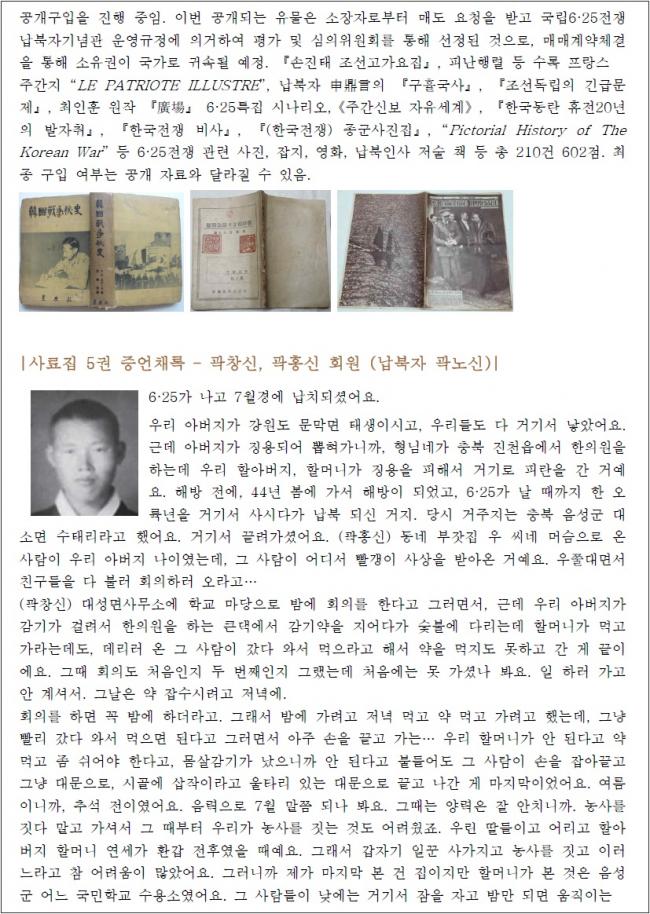 공개구입을 진행 중임. 이번 공개되는 유물은 소장자로부터 매도 요청을 받고 국립6·25전쟁
납북자기념관 운영규정에 의거하여 평가 및 심의위원회를 통해 선정된 것으로, 매매계약체결
을 통해 소유권이 국가로 귀속될 예정. 『손진태 조선고가요집』, 피난행렬 등 수록 프랑스
주간지 “LE PATRIOTE ILLUSTRE”, 납북자 申鼎言의 『구흘국사』, 『조선독립의 긴급문
제』, 최인훈 원작 『廣場』 6·25특집 시나리오,《주간신보 자유세계》, 『한국동란 휴전20년
의 발자취』, 『한국전쟁 비사』, 『(한국전쟁) 종군사진집』, “Pictorial History of The
Korean War” 등 6·25전쟁 관련 사진, 잡지, 영화, 납북인사 저술 책 등 총 210건 602점. 최
종 구입 여부는 공개 자료와 달라질 수 있음.
韓國戰爭秘史
韓國戰爭秘史
|사료집 5권 증언채록 - 곽창신, 곽홍신 회원 (납북자 곽노신)|
6·25가 나고 7월경에 납치되셨어요.
우리 아버지가 강원도 문막면 태생이시고, 우리들도 다 거기서 낳았어요.
근데 아버지가 징용되어 뽑혀가니까, 형님네가 충북 진천읍에서 한의원을
하는데 우리 할아버지, 할머니가 징용을 피해서 거기로 피란을 간 거예
요. 해방 전에, 44년 봄에 가서 해방이 되었고, 6·25가 날 때까지 한 오
륙년을 거기서 사시다가 납북 되신 거지. 당시 거주지는 충북 음성군 대
소면 수태리라고 했어요. 거기서 끌려가셨어요. (곽홍신) 동네 부잣집 우 씨네 머슴으로 온
사람이 우리 아버지 나이였는데, 그 사람이 어디서 빨갱이 사상을 받아온 거예요. 우쭐대면서
친구들을 다 불러 회의하러 오라고…
(곽창신) 대성면사무소에 학교 마당으로 밤에 회의를 한다고 그러면서, 근데 우리 아버지가
감기가 걸려서 한의원을 하는 큰댁에서 감기약을 지어다가 숯불에 다리는데 할머니가 먹고
가라는데도, 데리러 온 그 사람이 갔다 와서 먹으라고 해서 약을 먹지도 못하고 간 게 끝이
에요. 그때 회의도 처음인지 두 번째인지 그랬는데 처음에는 못 가셨나 봐요. 일 하러 가고
안 계셔서. 그날은 약 잡수시려고 저녁에.
회의를 하면 꼭 밤에 하더라고. 그래서 밤에 가려고 저녁 먹고 약 먹고 가려고 했는데, 그냥
빨리 갔다 와서 먹으면 된다고 그러면서 아주 손을 끌고 가는… 우리 할머니가 안 된다고 약
먹고 좀 쉬어야 한다고, 몸살감기가 났으니까 안 된다고 붙들어도 그 사람이 손을 잡아끌고
그냥 대문으로, 시골에 삽작이라고 울타리 있는 대문으로 끌고 나간 게 마지막이었어요. 여름
이니까, 추석 전이였어요. 음력으로 7월 말쯤 되나 봐요. 그때는 양력은 잘 안치니까. 농사를
짓다 말고 가셔서 그 때부터 우리가 농사를 짓는 것도 어려웠죠. 우린 딸들이고 어리고 할아
버지 할머니 연세가 환갑 전후였을 때예요. 그래서 갑자기 일꾼 사가지고 농사를 짓고 이러
느라고 참 어려움이 많았어요. 그러니까 제가 마지막 본 건 집이지만 할머니가 본 것은 음성
군 어느 국민학교 수용소였어요. 그 사람들이 낮에는 거기서 잠을 자고 밤만 되면 움직이는